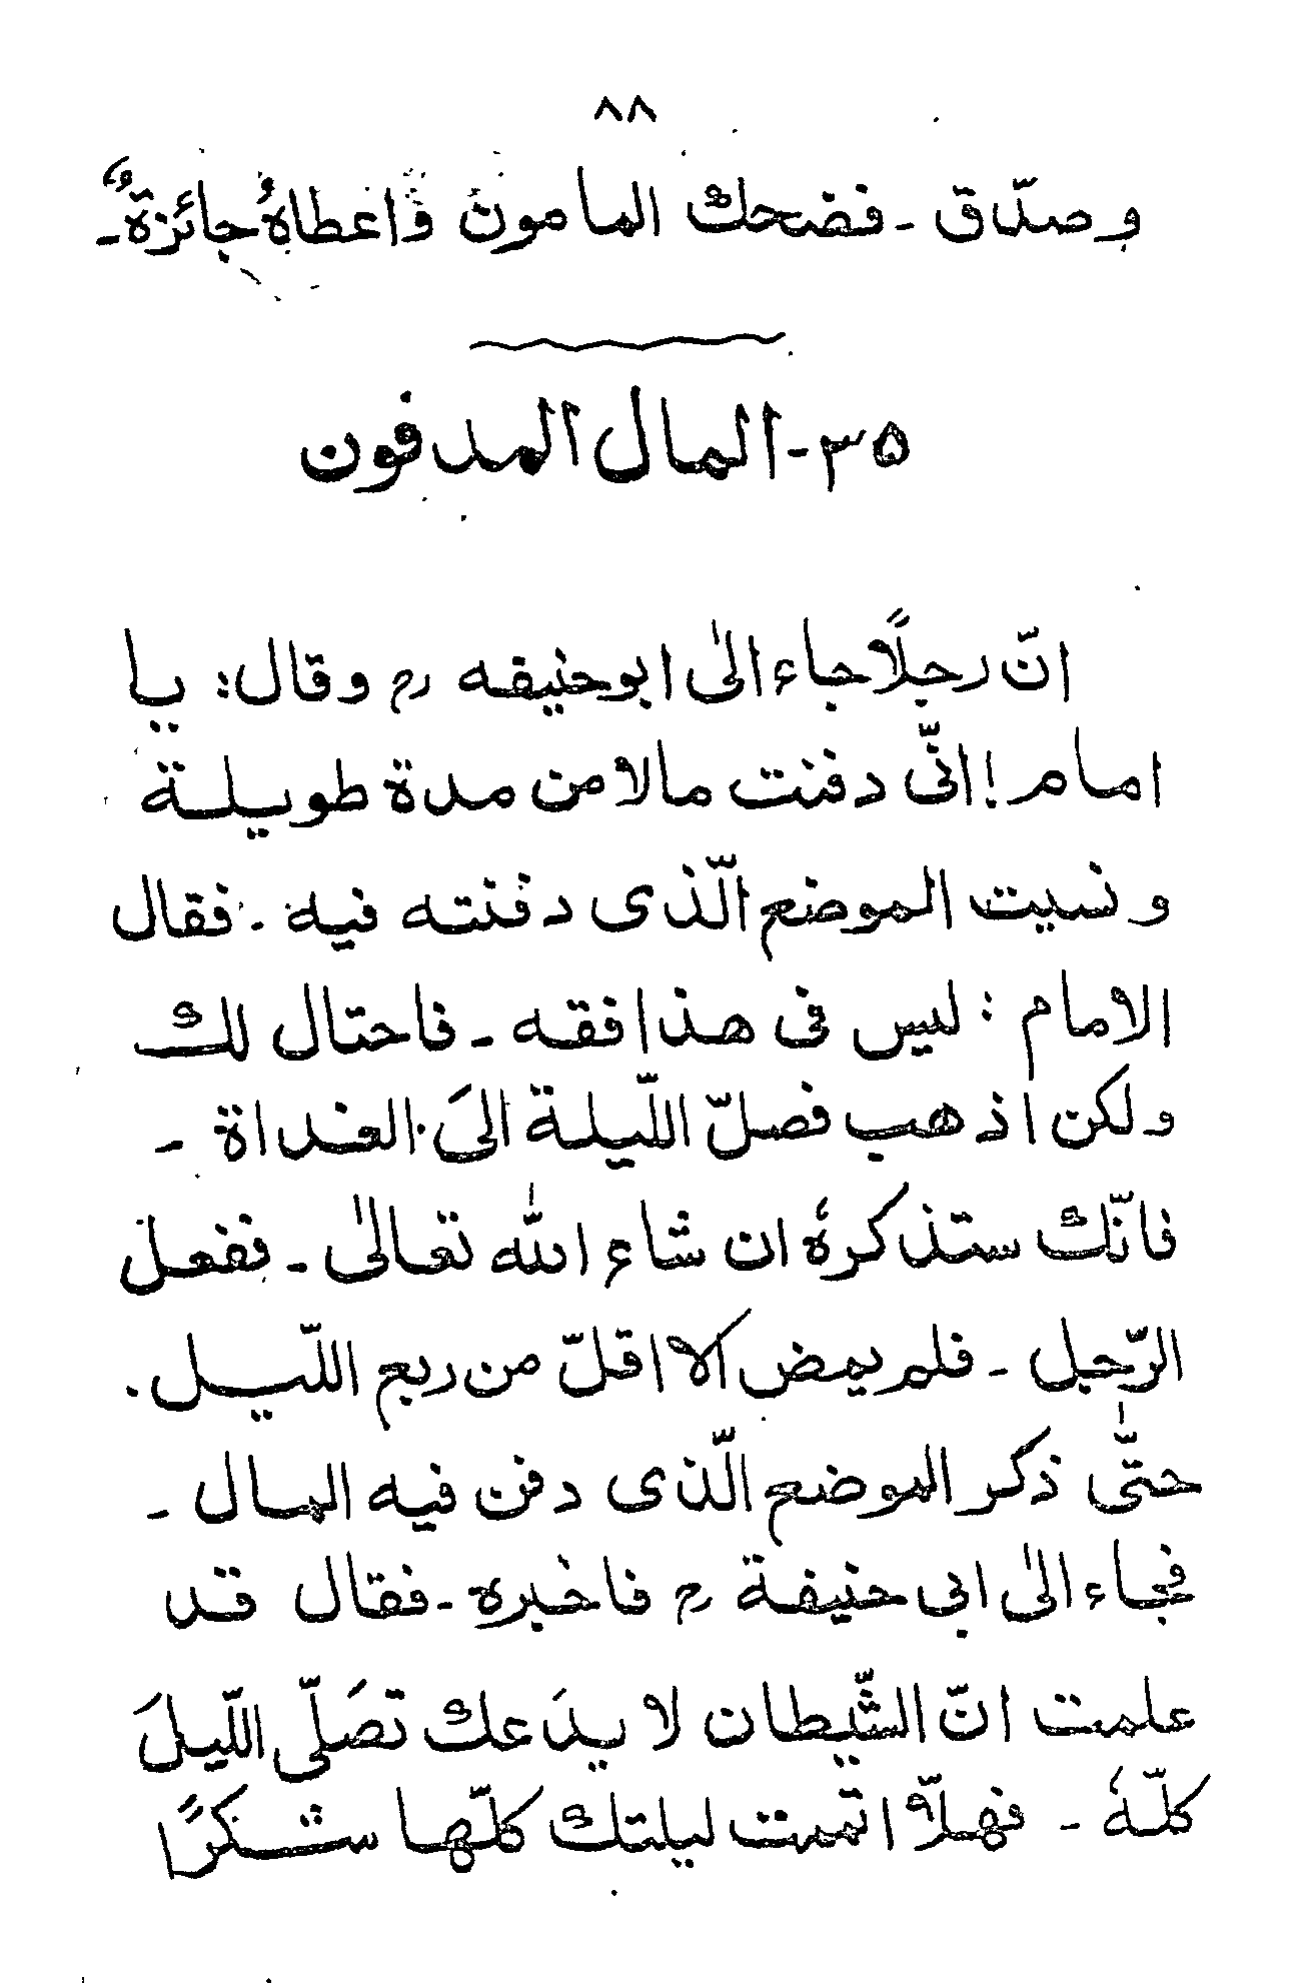 ٨٨
وصدّاق ـ فضحك المامون فاعطاهُ جائزةً ـ
٣٥ـ المال المدفون
انّ رجلًا جاء الىٰ ابوحنيفه رح وقال: يا
امام! انّى دفنت مالا من مدة طويلة
ونسيت الموضع الّذى دفنته فيه ـ فقال
الامام : ليس فى هذا فقه ـ فاحتال لك
ولكن اذهب فصلّ اللّيلة الىَ الغداة ـ
فانّك ستذكرهٗ ان شاء اللّٰه تعالىٰ ـ ففعل
الرّجل ـ فلم يمض الا اقلّ من ربع اللّيل .
حتّٰى ذكر الموضع الّذى دفن فيه المال ـ
فجاء الىٰ ابى حنيفة رح فاخبره ـ فقال قد
علمت انّ الشّيطان لا يدَعك تصَلّى اللّيلَ
كلّهٗ ـ فهلاّ اتممت ليلتك كلّها شكرًا